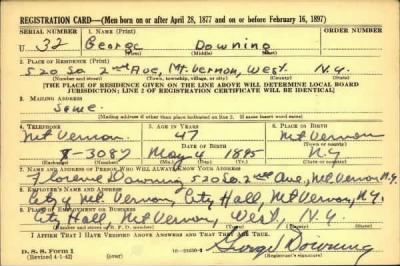 REGISTRATION CARD—(Men born on or after April 28, 1877 and on or before February 16, 1897)
SERIAL NUMBER 1. NAME (Print)
U 32 George Downing
(First) (Middle) (Last)
2. PLACE OF RESIDENCE (Print)
520 So 2nd Ave, Mt. Vernon, West. N.Y.
(Number and street) (Town, township, village, or city) (County) (State)
[THE PLACE OF RESIDENCE GIVEN ON THE LINE ABOVE WILL DETERMINE LOCAL BOARD
JURISDICTION; LINE 2 OF REGISTRATION CERTIFICATE WILL BE IDENTICAL]
3. MAILING ADDRESS
Same.
[Mailing address if other than place indicated on line 2. If same insert word same]
4. TELEPHONE 5. AGE IN YEARS 6. PLACE OF BIRTH
Mt Vernon 47 Mt Vernon
DATE OF BIRTH
8-3087 May 4 1895 N.Y.
(Exchange) (Number) (Mo.) (Day) (Yr.) (State or country)
7. NAME AND ADDRESS OF PERSON WHO WILL ALWAYS KNOW YOUR ADDRESS
Downing 520 So. 2nd Ave, Mt Vernon N.Y.
8. EMPLOYER'S NAME AND ADDRESS
City of Mt. Vernon, City Hall, Mt Vernon, N.Y.
9. PLACE OF EMPLOYMENT OR BUSINESS
City Hall, Mt Vernon, West, N.Y.
(Number and street or R. F. D. number) (Town) (County) (State)
I AFFIRM THAT I HAVE VERIFIED ABOVE ANSWERS AND THAT THEY ARE TRUE.
D. S. S. Form 1
(Revised 4-1-42) (over)
George Downing
(Registrant's signature)